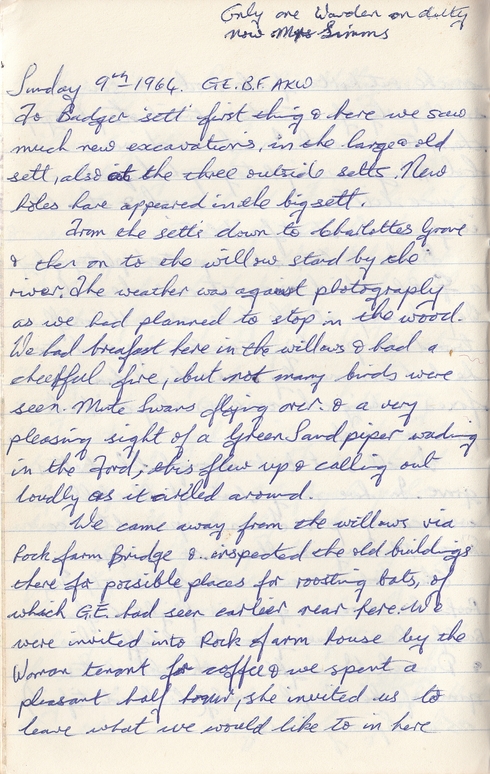 Only one Warden on dutty
now Mrs Simms
Sunday 9th 1964. G.E. B.F. AKW
To Badger sett first thing & here we saw
much new excavations, in the large & old
sett, also at the three outside setts. New
holes have appeared in the big sett.
From the setts down to Charlottes Grove
& then on to the willow stand by the
river. The weather was against photography
as we had planned to stop in the wood.
We had breafast here in the willows & had a
cheerful fire, but not many birds were
seen. Mute Swans flying over. & a very
pleasing sight of a Green Sandpiper wading
in the Ford, this flew up & calling out
loudly as it circled around.
We came away from the willows via
Rock farm Bridge & inspected the old buildings
there for possible places for roosting bats, of
which G.E. had seen earlier near here. We
were invited into Rock farm house by the
Woman tenant for coffee & we spent a
pleasant half hour, she invited us to
leave what we would like to in here